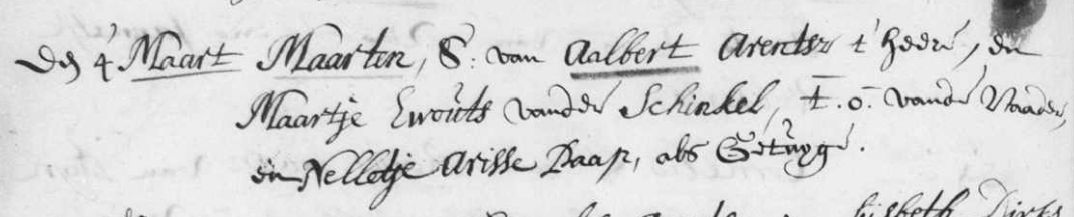 Den 4 Maart Maarten, S: van Aalbert Arentsz t' Heere, en
Maartje Ewouts vander Schinkel, t. o. vande Vaader,
en Nelletje Arisse Paap, als Getuyge.
lijsbeth Dirks